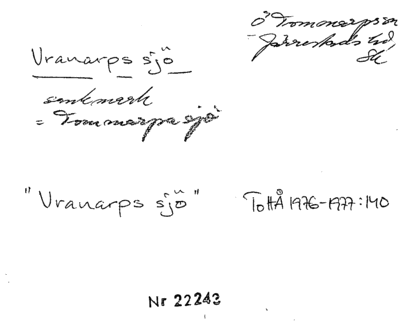 Ö Tommarps sn
Vranarps sjö
Järrestads hd,
Sk
sankmark
= Tommarpa sjö
"Vranarps sjö"
ToHÅ 1976-1977:140
Nr 22243